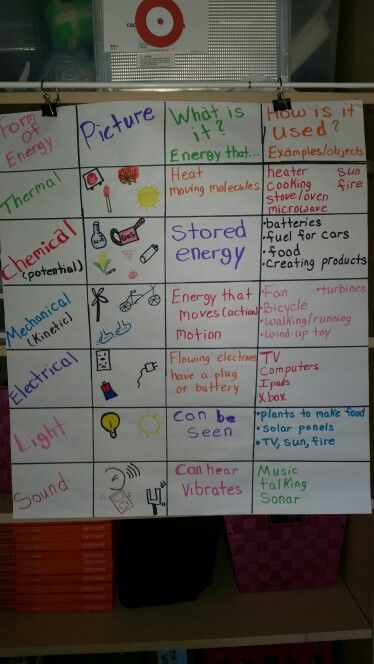 Form of Energy
Picture
What is it?
Energy that...
How is it used?
Examples/objects
Thermal
Heat
moving molecules
heater sun
cooking fire
stove/oven
microwave
Chemical
(potential)
Stored
energy
•batteries
•fuel for cars
•food
•creating products
Mechanical
(kinetic)
Energy that
moves (action)
motion
•Fan •turbines
•Bicycle
•walking/running
•wind-up toy
Electrical
Flowing electrons
have a plug
or battery
TV
Computers
Ipads
Xbox
Light
can be
seen
•plants to make food
•solar panels
•TV, sun, fire
Sound
Can hear
Vibrates
Music
talking
Sonar